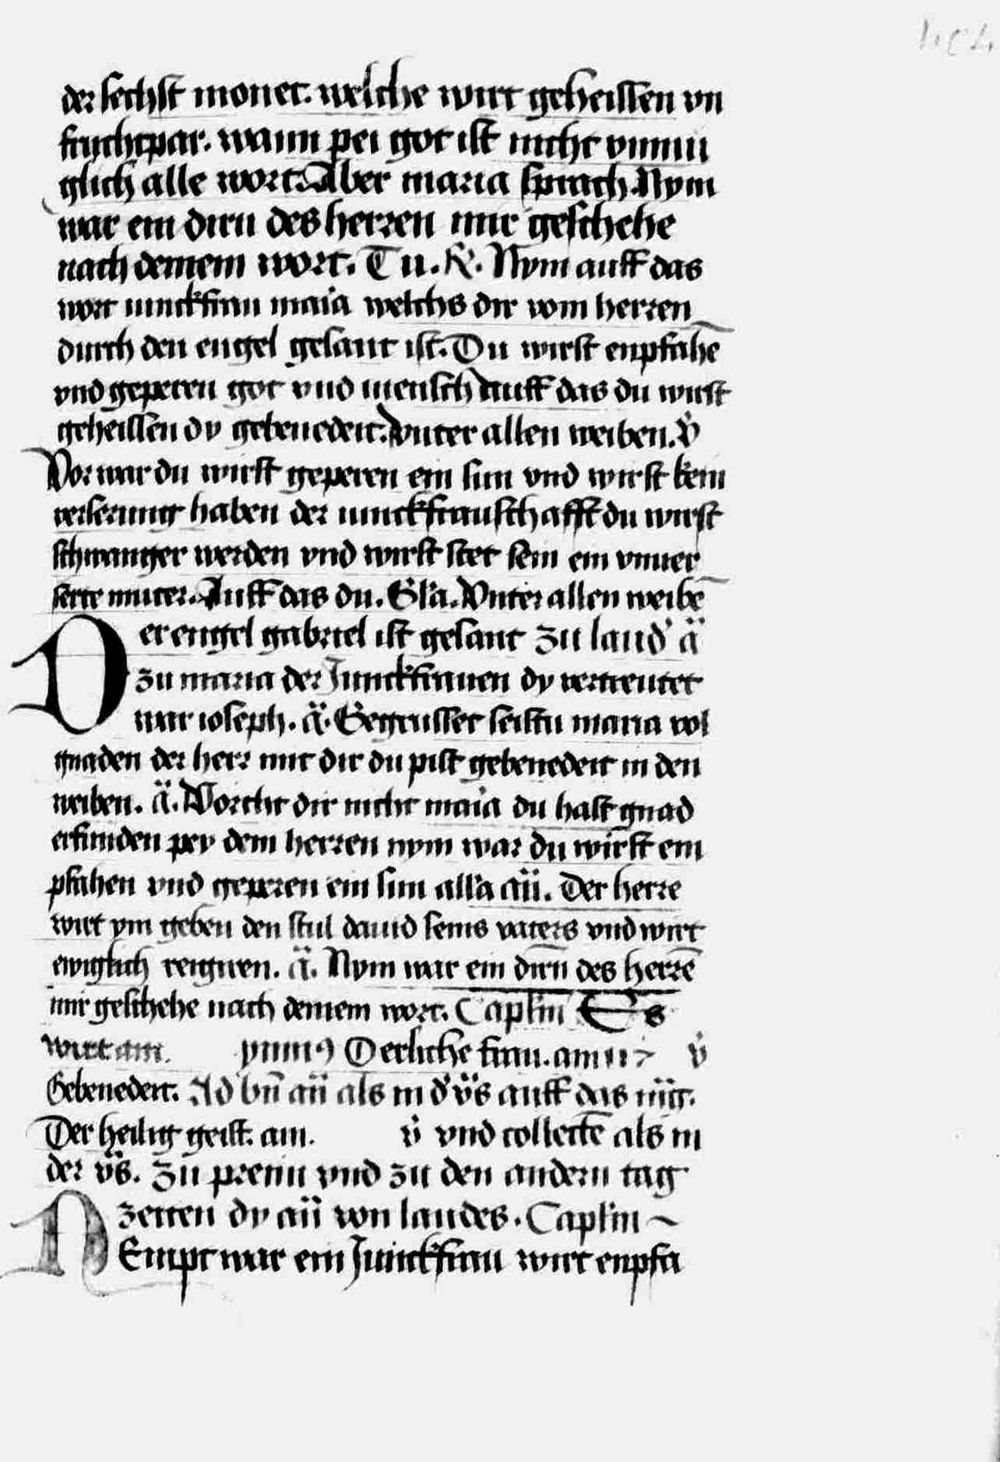 der sechst monet. welche wirt geheissen vn
fruchtpar. wann pei got ist nicht vnmu
glich alle wort. Aber maria sprach Nym
war ein dirn des herren mir geschehe
nach deinem wort. Tu. R. Nym auff das
wort iunckfrau maia welchs dir vom herren
durch den engel gesant ist. Du wirst enpfahē
vnd geperen got vnd mensch Auff das du wirst
geheissen dy gebenedeit. Vnter allen weiben. v̇
Vor war du wirst geperen ein sun vnd wirst kein
verserung haben der iunckfrauschafft du wirst
schwanger werden vnd wirst stet sein ein vnuer
serte muter. Auff das du. Gl'a. Vnter allen weibē
Der engel gabriel ist gesant zu laud' ä
zu maria der Junckfrauen dy vertreutet
war ioseph. ä. Gegrusset seistu maria vol
gnaden der herr mit dir du pist gebenedeit in den
weiben. ä. Vorcht dir nicht maia du hast gnad
erfunden pey dem herren nym war du wirst em
pfahen vnd geperen ein sun all'a aū. Der herre
wirt ym geben den stul dauid seins vaters vnd wirt
ewiglich reigiren. ä. Nym war ein dirn̄ des herrē
mir geschehe nach deinem wort. Capl'm Es
wirt am. ymn9 O erliche frau. am v̇
Gebenedeit. Ad bn̄ aū als in d' v̈s auff das
Der heilig geist. am. v̇ vnd collectē als in
der v̈s. Zu preim vnd zu den andern tag
zeiten dy aū von laudes. Capl'm
Nempt war ein Junckfrau wirt enpfa